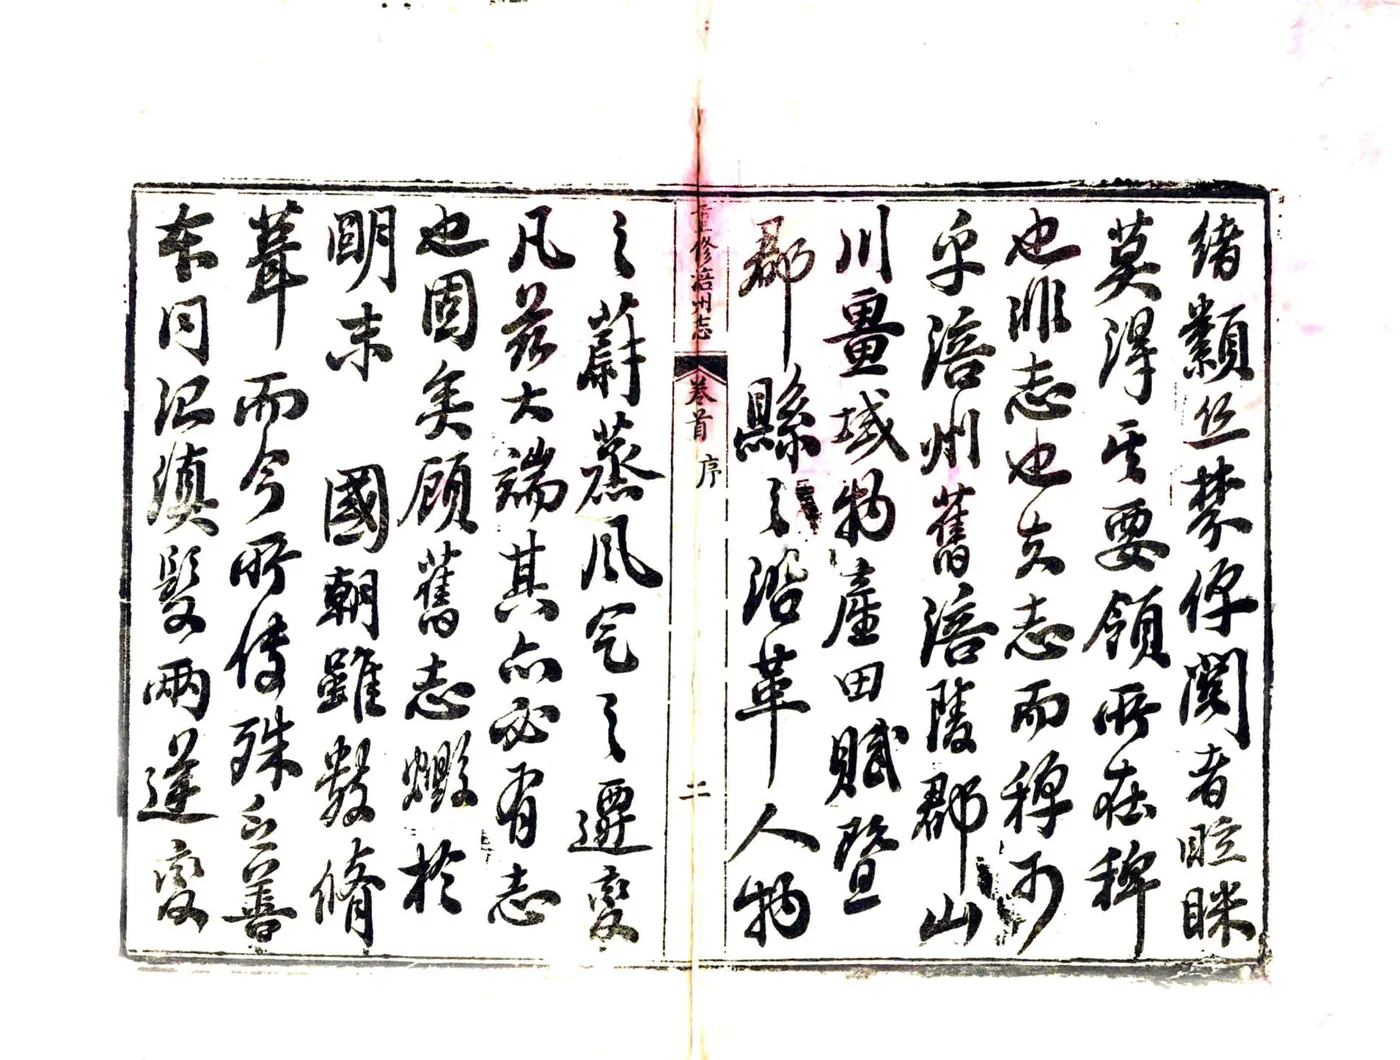 緒纇絲棼俾閱者眩眯
莫得其要領所在稗
也非志也夫志而稗可
乎涪州舊涪陵郡山
川畺域物產田賦暨
郡縣之沿革人物
重修涪州志 卷首 序 二
之蔚蒸風气之遷變
凡茲大端其亦必有志
也固矣顧舊志燬於
明末 國朝雖數脩
葺而今所傳殊乏善
本同治滇髮兩逆變